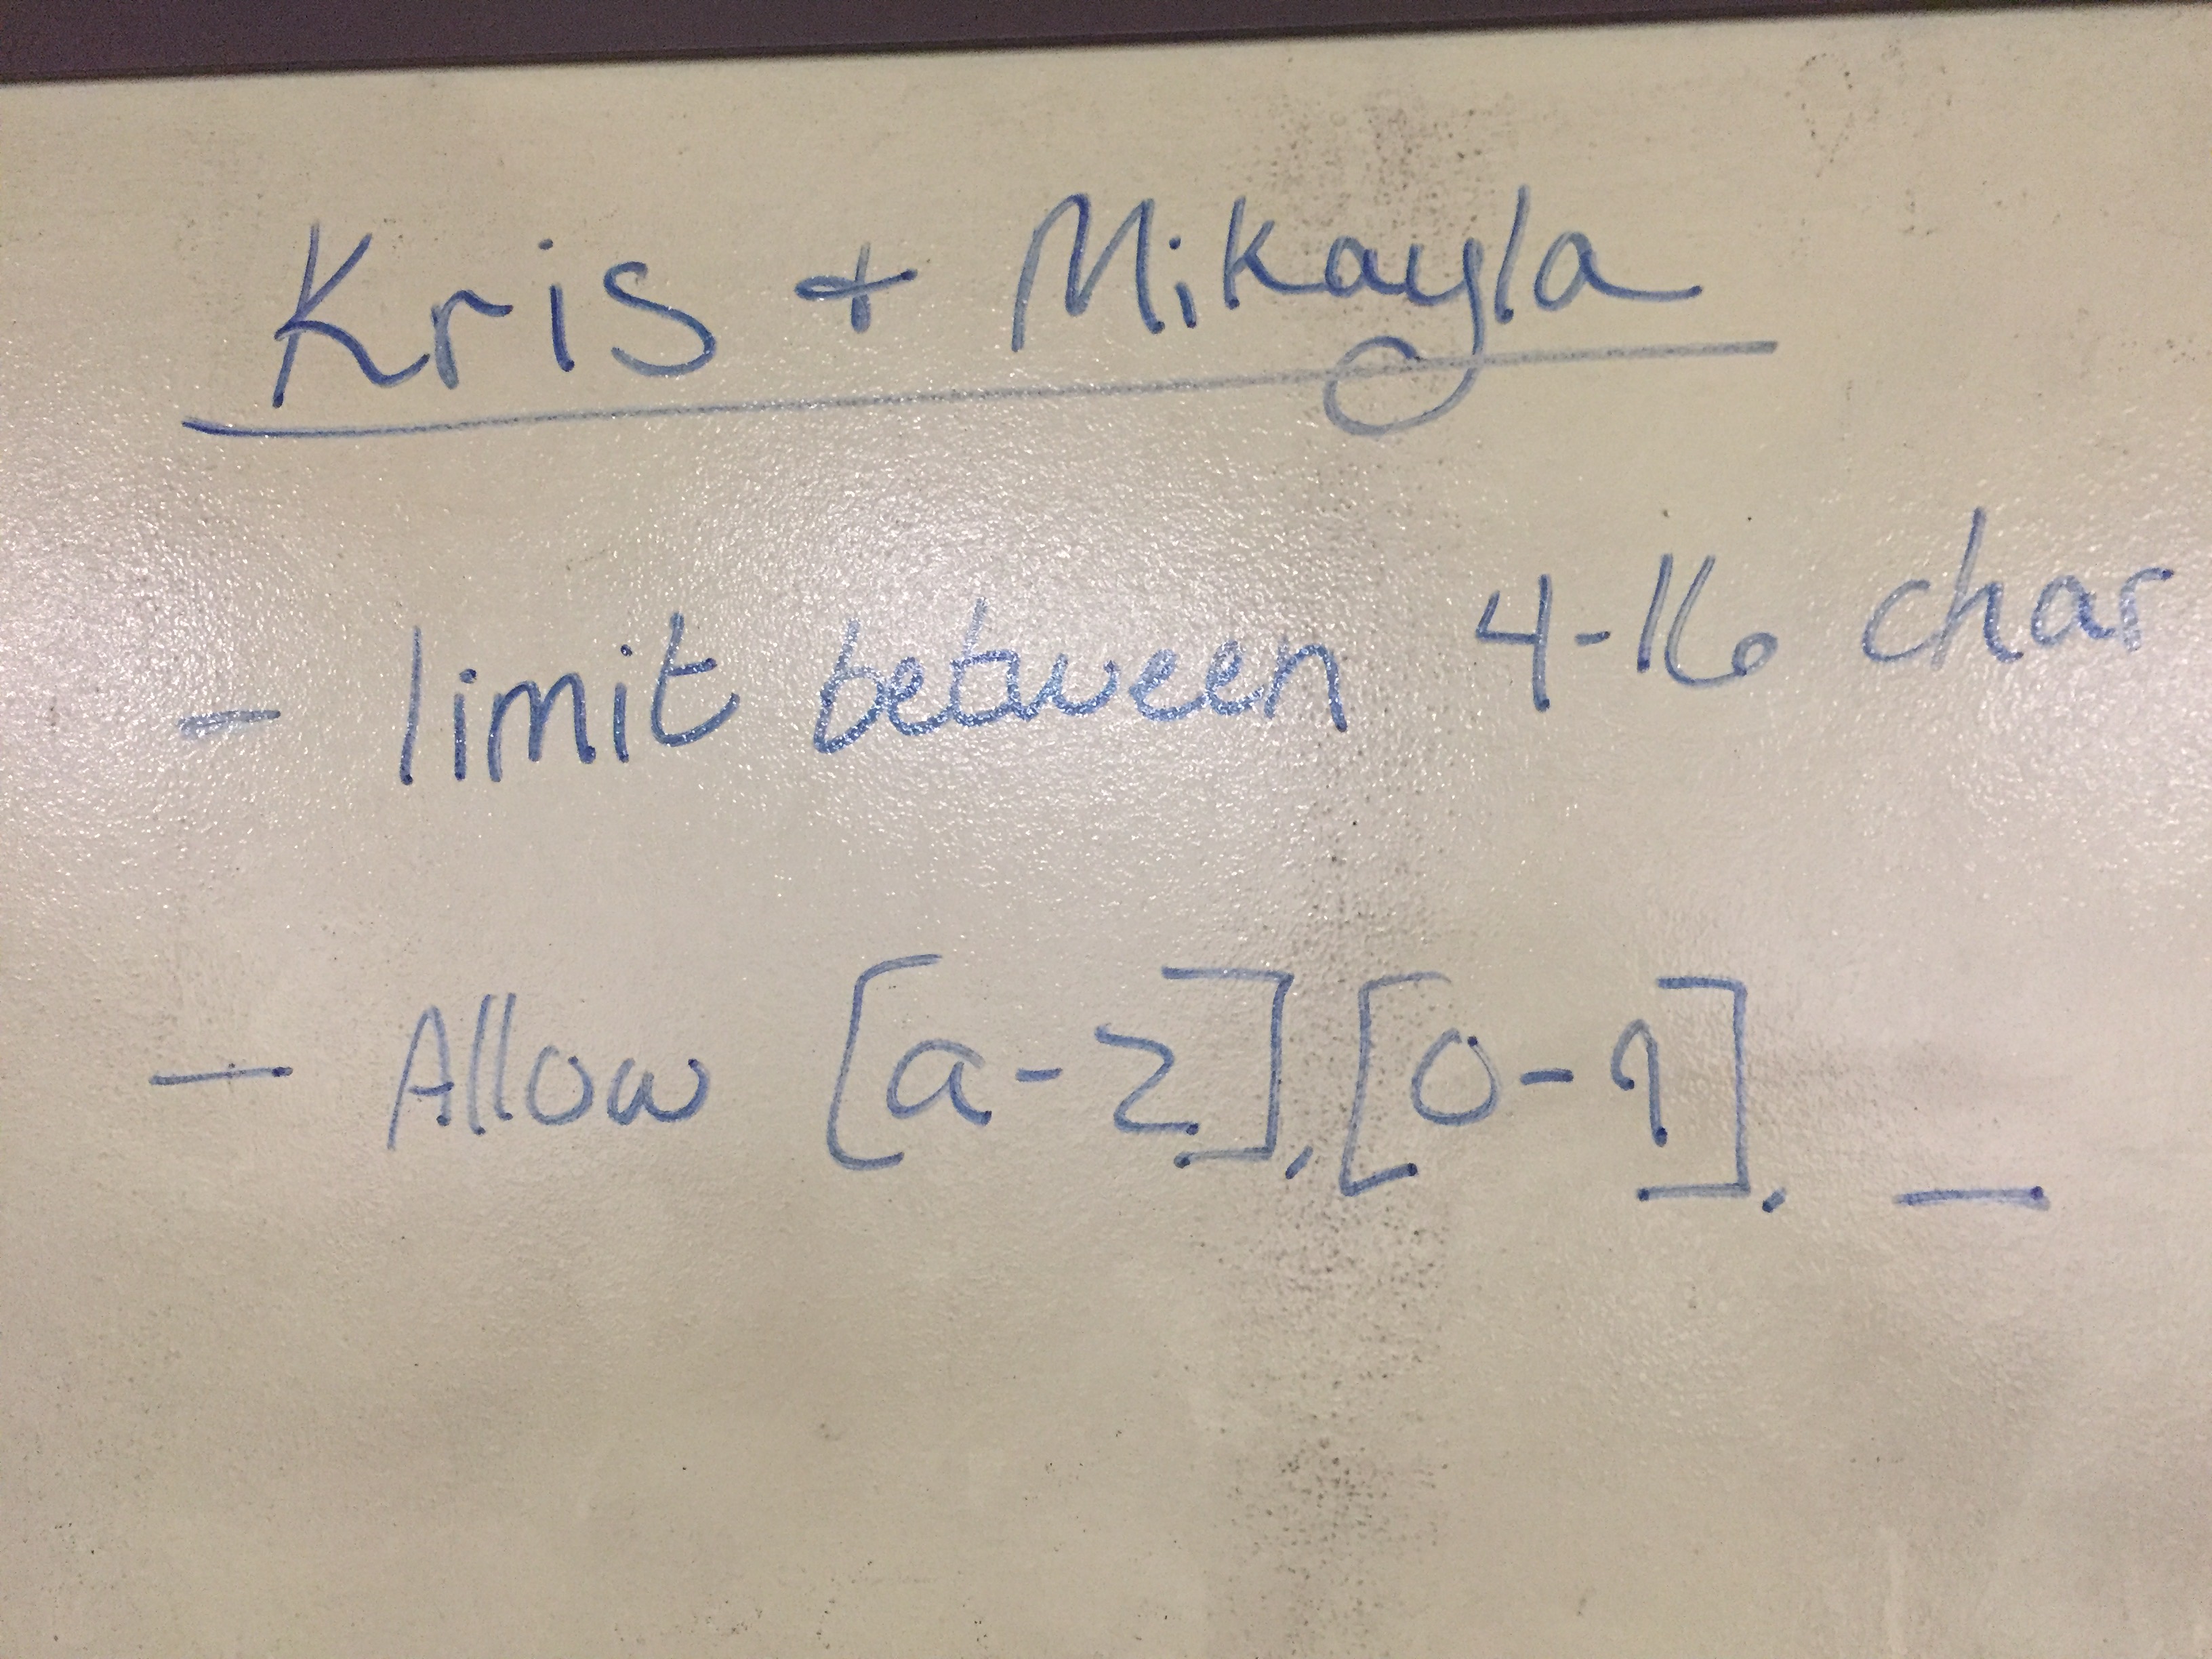 Kris + Mikayla
- limit between 4-16 char
- Allow [a-z], [0-9], _